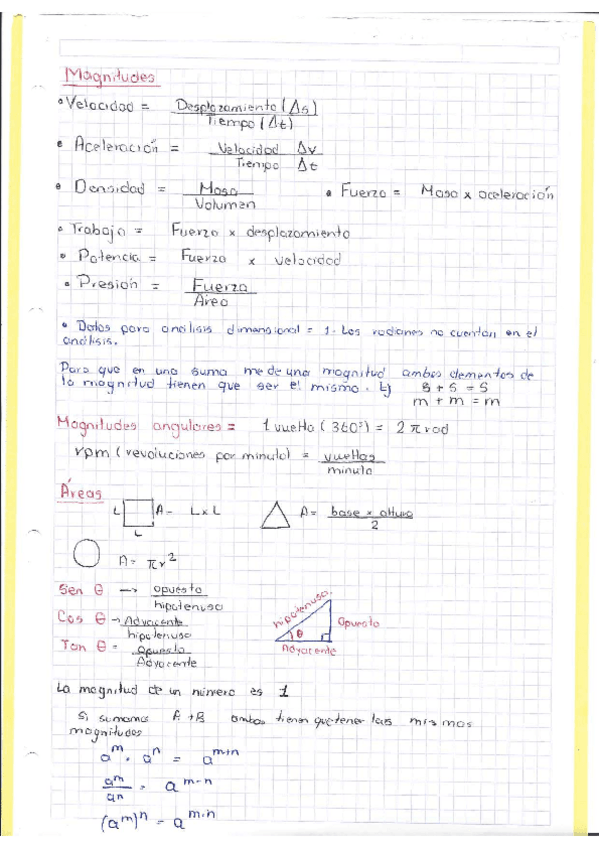 Magnitudes
• Velocidad = Desplazamiento (Δs)
Tiempo (Δt)
• Aceleración = Velocidad Δv
Tiempo Δt
• Densidad = Masa
Volumen
• Fuerza = Masa x aceleración
• Trabajo = Fuerza x desplazamiento
• Potencia = Fuerza x velocidad
• Presión = Fuerza
Área
• Datos para análisis dimensional = 1. Los radianes no cuentan en el
análisis.
Para que en una suma me de una magnitud ambos elementos de
la magnitud tienen que ser el mismo. ↳ s + s = s
m + m = m
Magnitudes angulares = 1 vuelta (360°) = 2 π rad
rpm (revoluciones por minuto) = vueltas
minuto
Áreas
L A = L x L
L
A = base x altura
2
A = πr²
Sen θ → opuesto
hipotenuso
Cos θ → Adyacente
hipotenuso
Tan θ = opuesto
Adyacente
hipotenuso.
θ
Opuesto
Adyacente
La magnitud de un número es 1
Si sumamos A + B ambos tienen que tener las mismas
magnitudes
aᵐ · aⁿ = aᵐ⁺ⁿ
aᵐ
aⁿ = aᵐ⁻ⁿ
(aᵐ)ⁿ = aᵐ·ⁿ